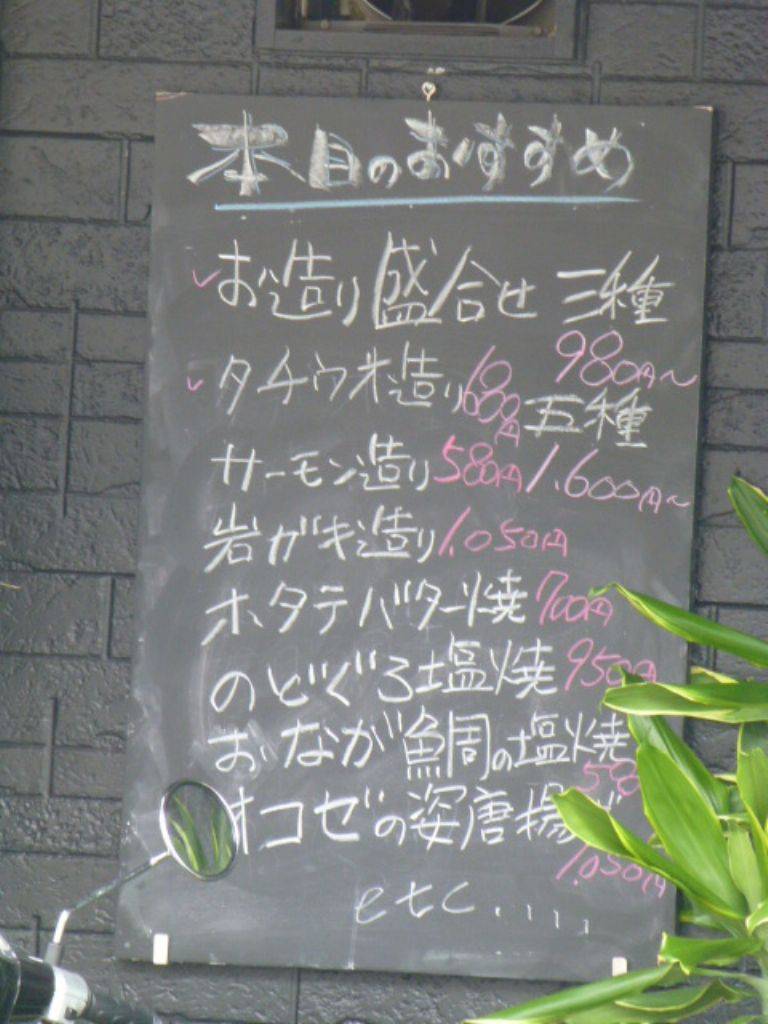 本日のおすすめ
お造り盛合せ 三種 980円〜
五種 1.600円〜
タチウオ造り
サーモン造り 580円
岩ガキ造り 1.050円
ホタテバター焼 700円
のどぐろ塩焼 950円
おなが鯛の塩焼
オコゼの姿唐揚げ 1.050円
etc.....